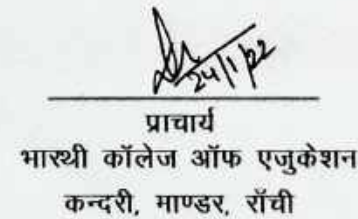 24/1/22
प्राचार्य
भारथी कॉलेज ऑफ एजुकेशन
कन्दरी, माण्डर, राँची